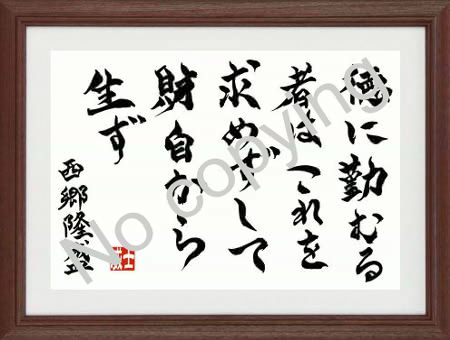 徳に勤むる
者はこれを
求めずして
財自から
生ず
西郷隆盛
No copying